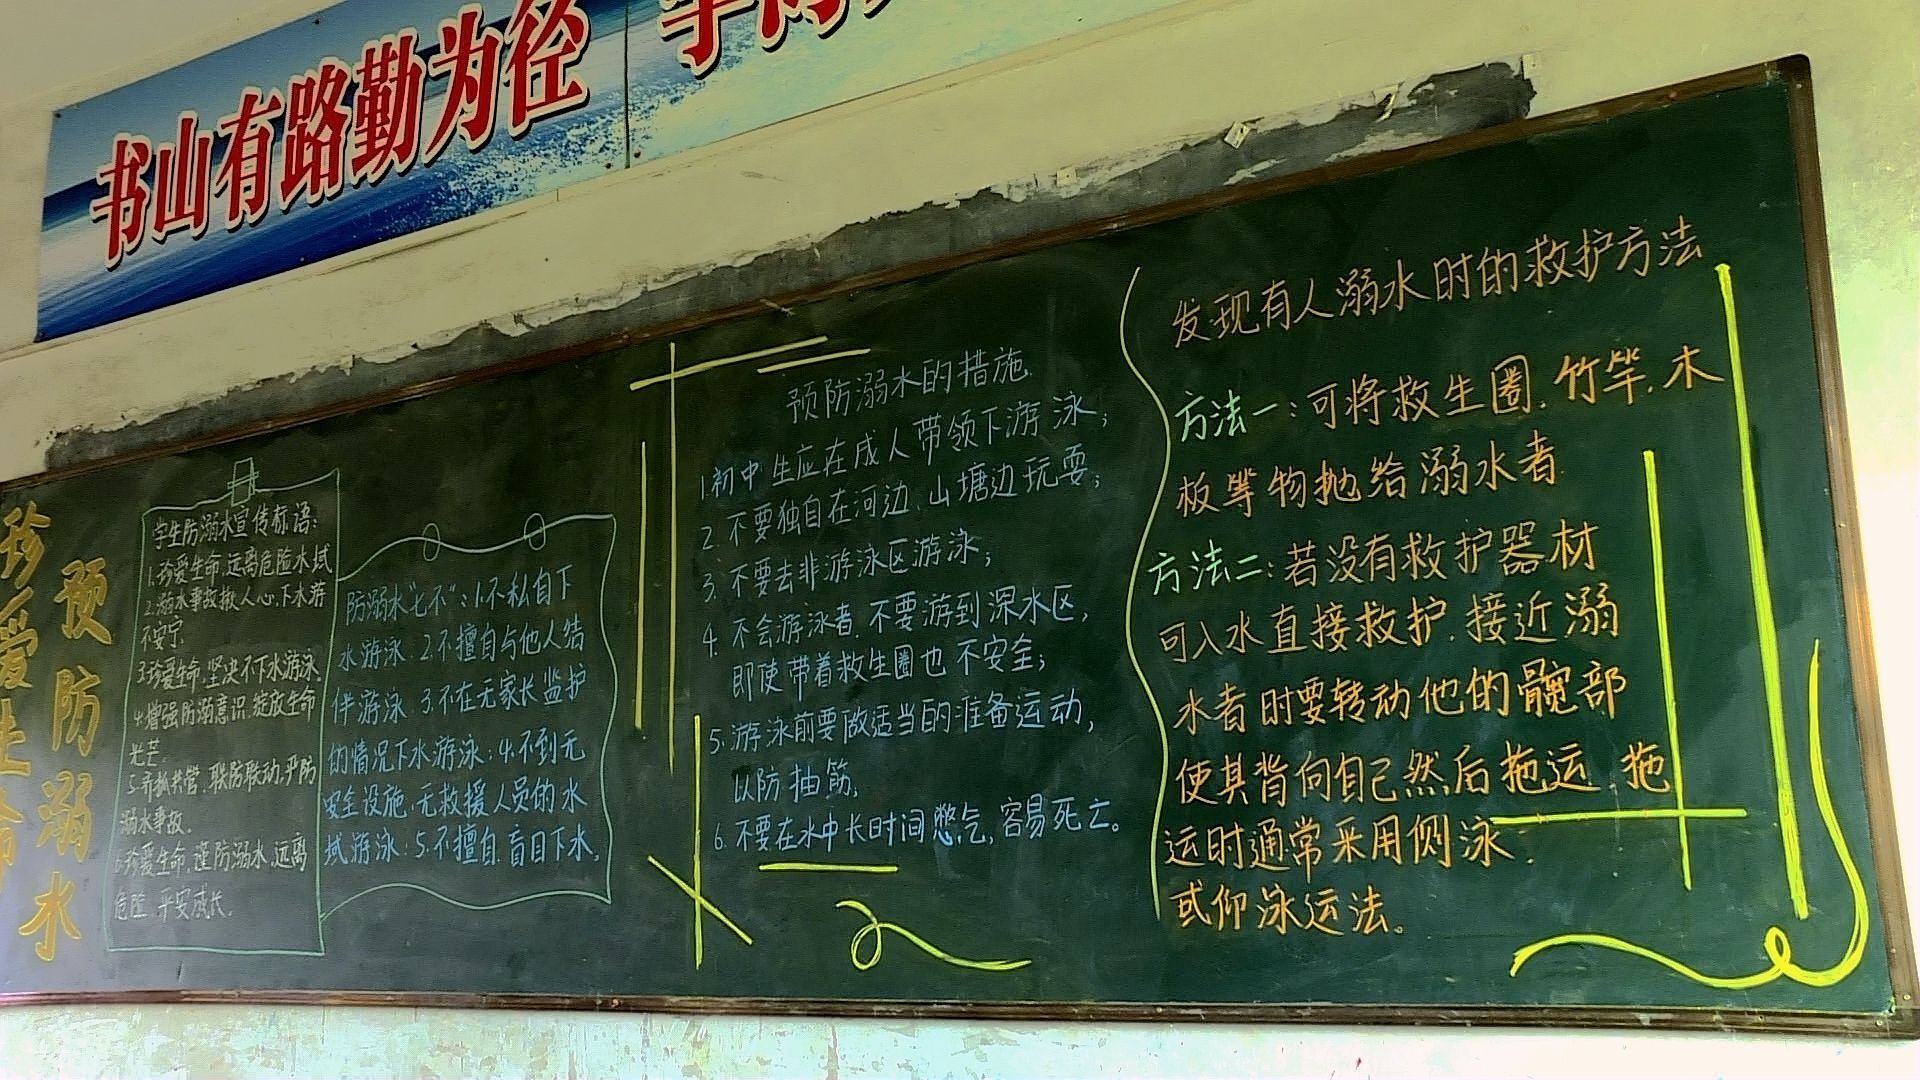 书山有路勤为径
珍爱生命
预防溺水
学生防溺水宣传标语:
1.珍爱生命,远离危险水域
2.溺水事故揪人心,下水游
不安宁
3.珍爱生命,坚决不下水游泳
4.增强防溺意识,绽放生命
光芒。
5.齐抓共管,联防联动,严防
溺水事故.
6.珍爱生命,谨防溺水,远离
危险,平安成长。
防溺水“七不”:1.不私自下
水游泳.2.不擅自与他人结
伴游泳.3.不在无家长监护
的情况下水游泳;4.不到无
安全设施,无救援人员的水
域游泳;5.不擅自,盲目下水。
预防溺水的措施.
1.初中生应在成人带领下游泳;
2.不要独自在河边、山塘边玩耍;
3.不要去非游泳区游泳;
4.不会游泳者.不要游到深水区,
即使带着救生圈也不安全;
5.游泳前要做适当的准备运动,
以防抽筋,
6.不要在水中长时间憋气,容易死亡。
发现有人溺水时的救护方法
方法一:可将救生圈.竹竿.木
板等物抛给溺水者.
方法二:若没有救护器材
可入水直接救护.接近溺
水者时要转动他的髋部
使其背向自己然后拖运.拖
运时通常采用侧泳.
或仰泳运法。